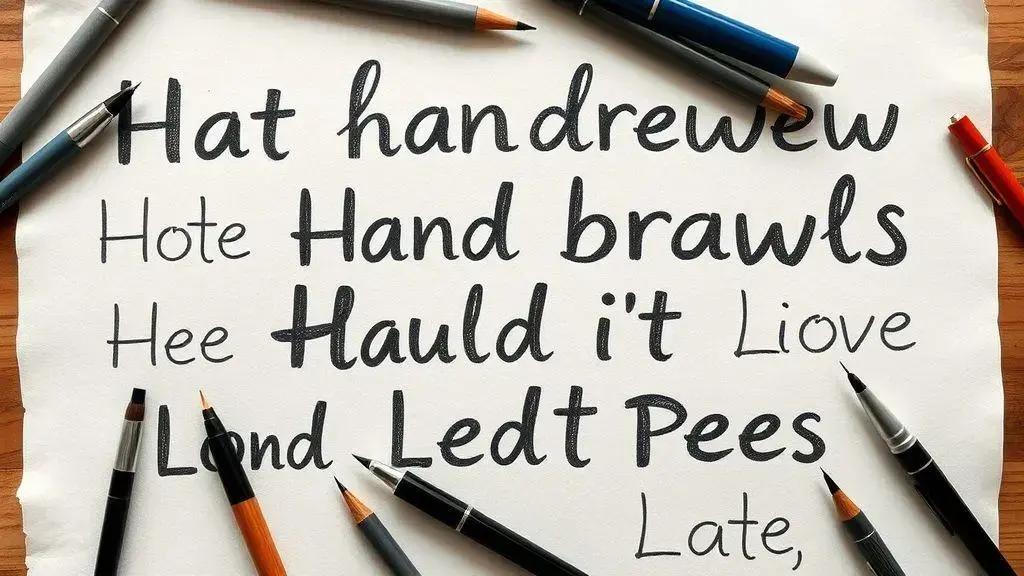 Hat handrewew
Hote Hand brawls
Hee Hauld i't Liove
Lond Ledt Pees
Late,